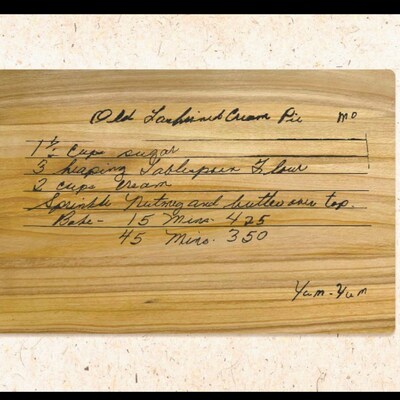 Old Fashined Cream Pie MO
1 1/2 Cups sugar
3 heaping Tablespoon Flour
2 cups cream
Sprinkle Nutmeg and butter over top.
Bake- 15 Mins. 425
45 Mins. 350
Yum-Yum